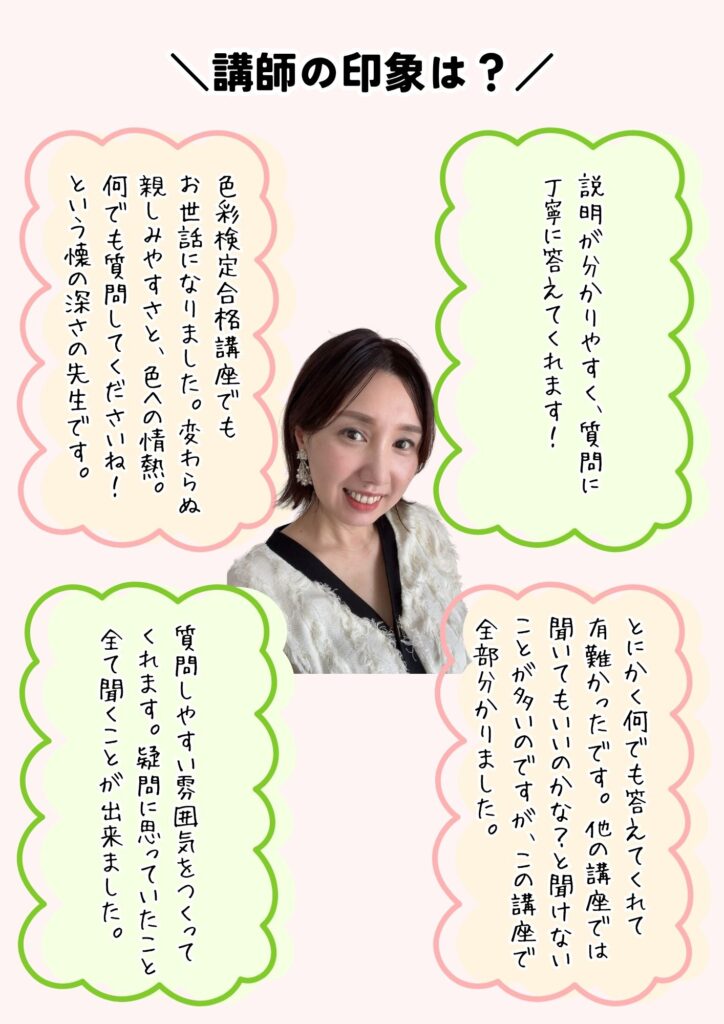 ＼講師の印象は？／
説明が分かりやすく、質問に
丁寧に答えてくれます！
色彩検定合格講座でも
お世話になりました。変わらぬ
親しみやすさと、色への情熱。
何でも質問してくださいね！
という懐の深さの先生です。
とにかく何でも答えてくれて
有難かったです。他の講座では
聞いてもいいのかな？と聞けない
ことが多いのですが、この講座で
全部分かりました。
質問しやすい雰囲気をつくって
くれます。疑問に思っていたこと
全て聞くことが出来ました。